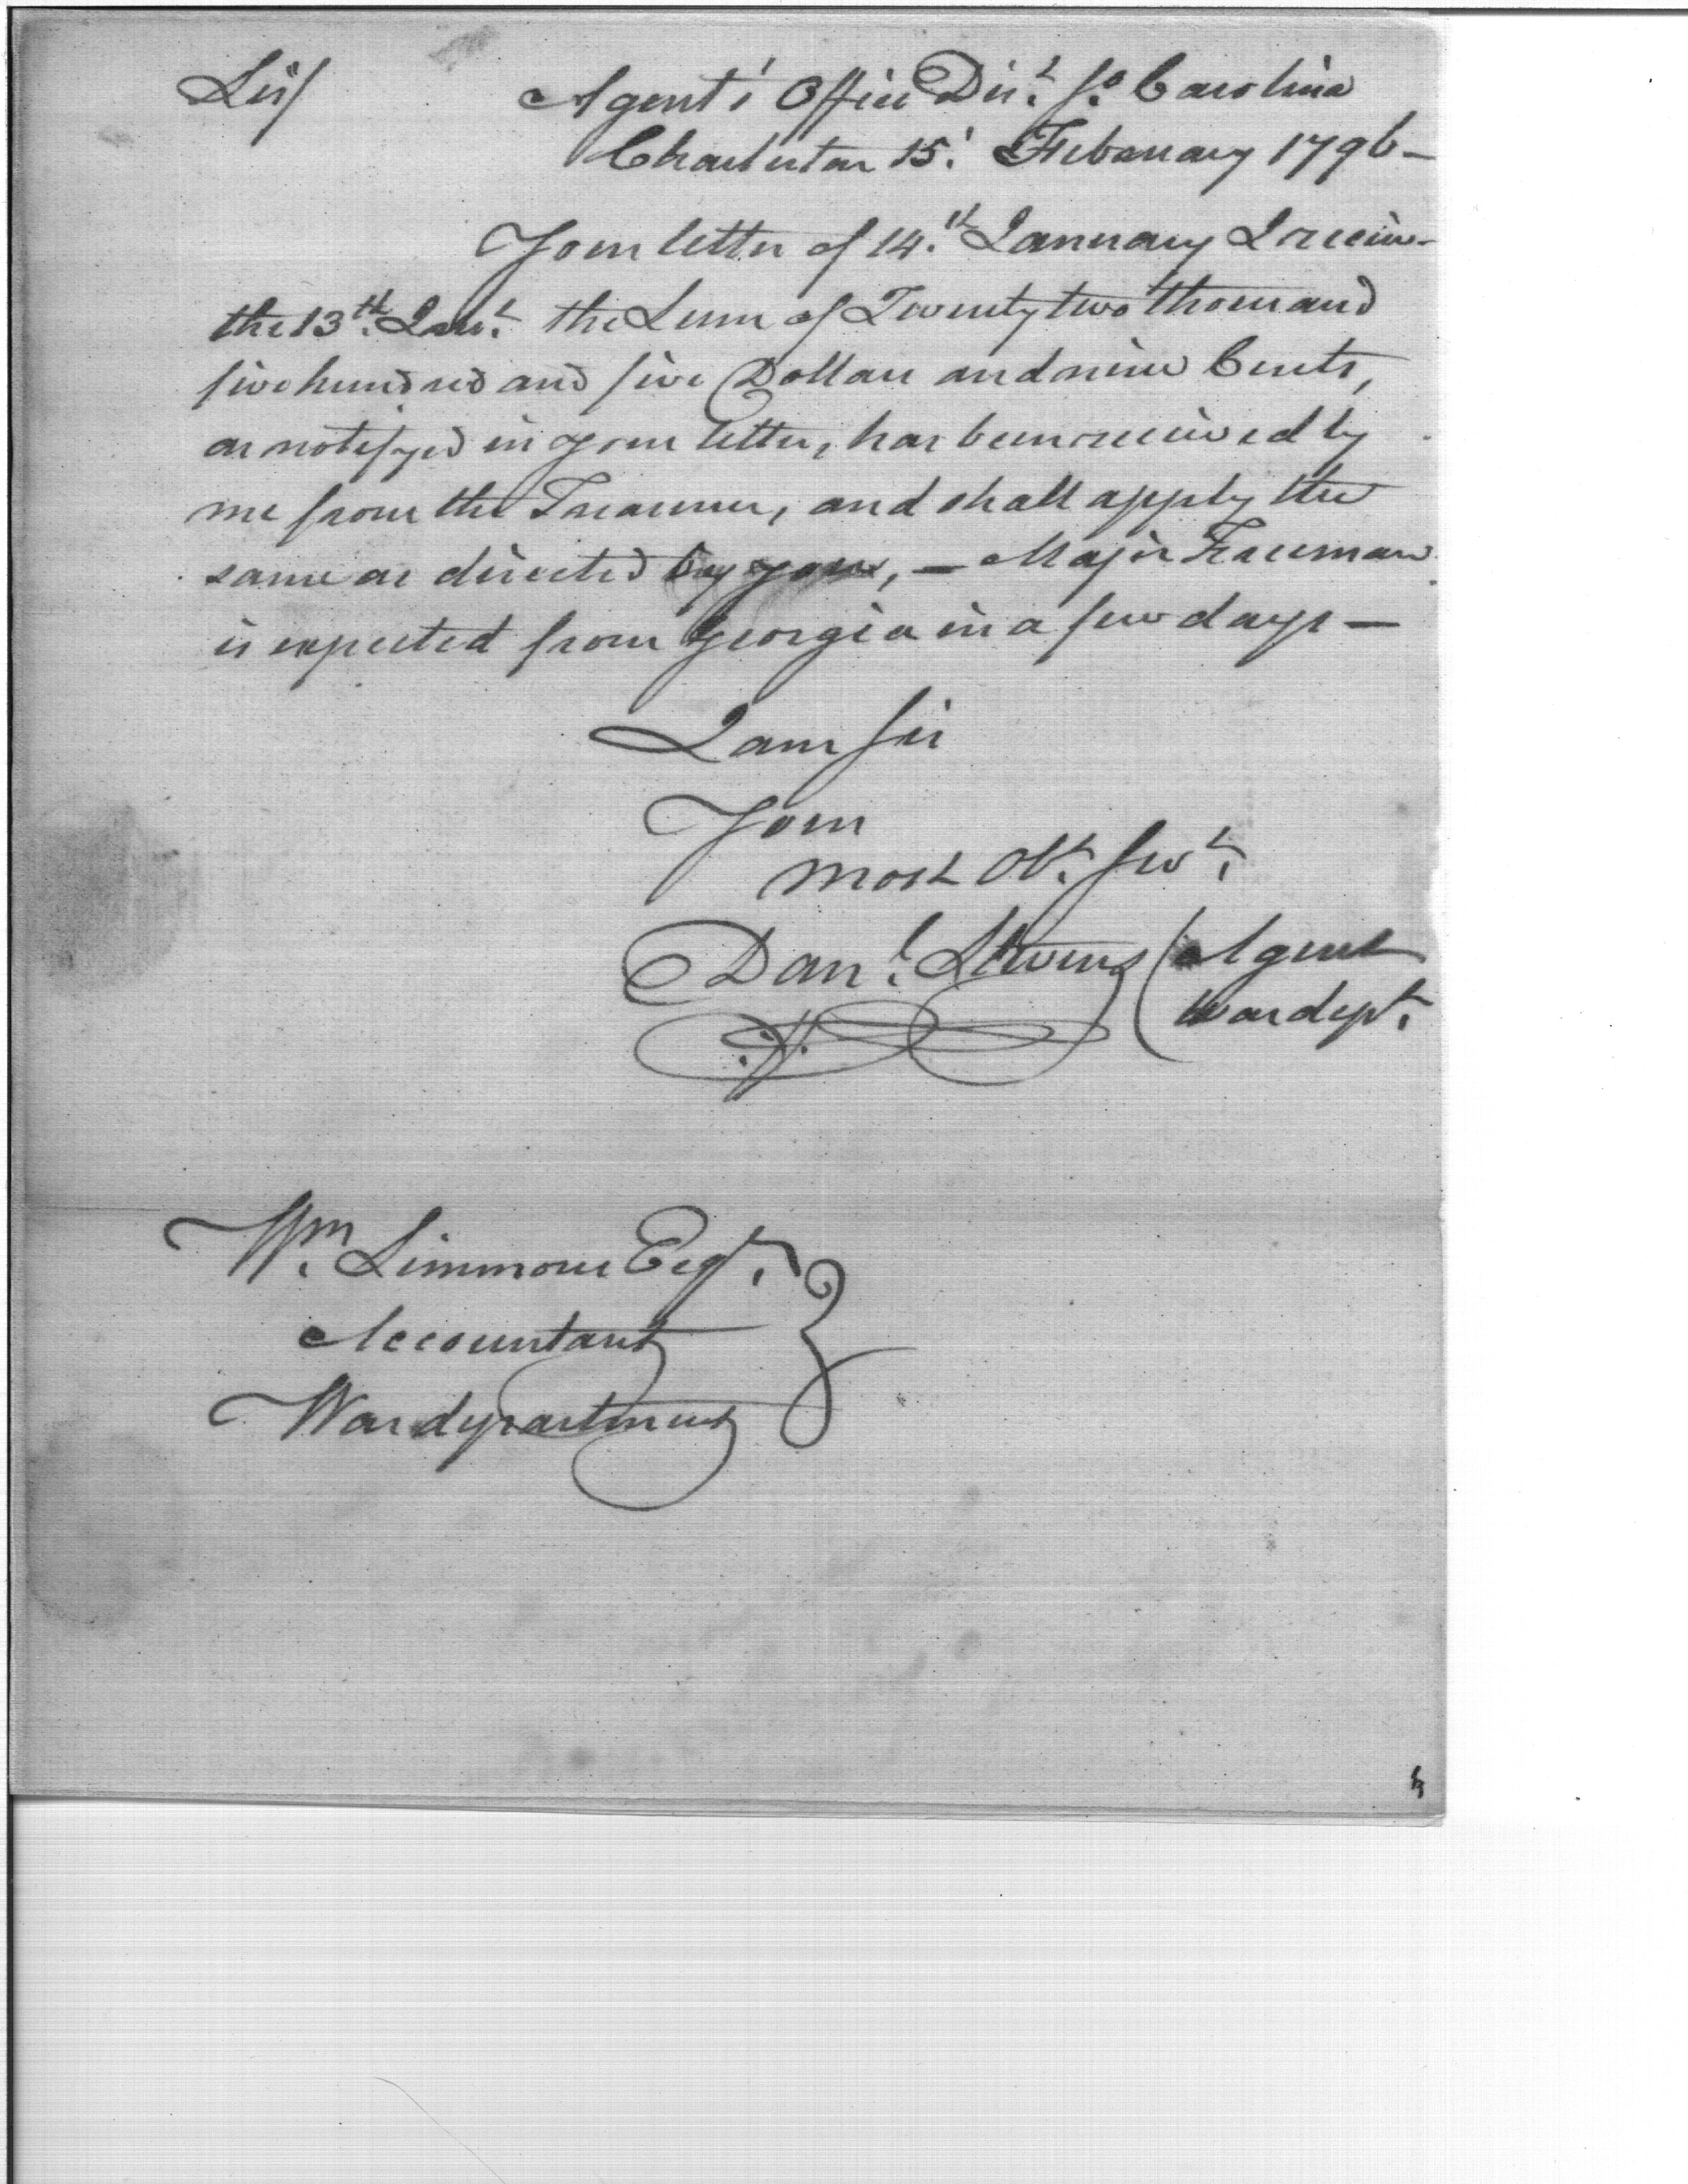 Sir/
Agent's Office Dis.t So. Carolina
Charleston 15.' February 1796 —
Your letter of 14.th January I receiv-
the 13.th Inst. the Sum of Twenty two thousand
five hundred and five Dollars and nine Cents,
as notifyed in your letter, has been received by
me from the Treasurer, and shall apply the
same as directed by you, — Major Freeman
is expected from Georgia in a few days —
I am Sir
Your
most Ob.t Serv.t
Dan.l Stevens ( Agent
War dep.t
Wm. Simmons Esq.r
Accountant
War department